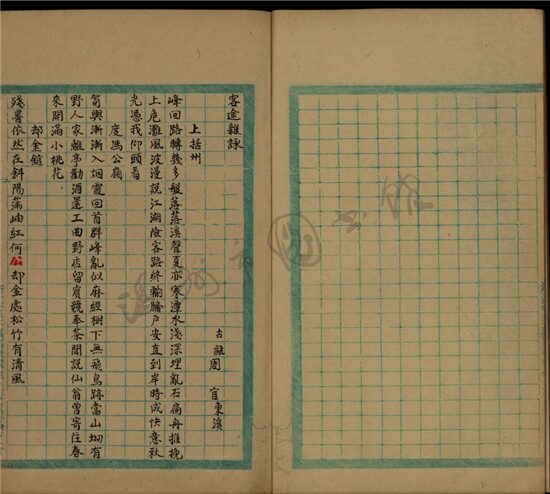 客途雜詠
古 周 官東溪
上括州
峰回路轉幾多盤落落溪聲夏亦寒潭水淺深埋亂石扁舟推挽
上危灘風波漫説江湖險客路終輸戶安直到岸時成快意秋
光憑我仰頭看
度馮公嶺
筍輿漸漸入烟霞回首群峰亂似麻經樹下無飛鳥跡當山坳有
野人家離亭勸酒還工曲野店留賓奉茶聞説仙翁曾寄住春
來開滿小桃花
却金館
殘暑依然在斜陽滿岫紅何公却金處松竹有清風
溫州市圖書館